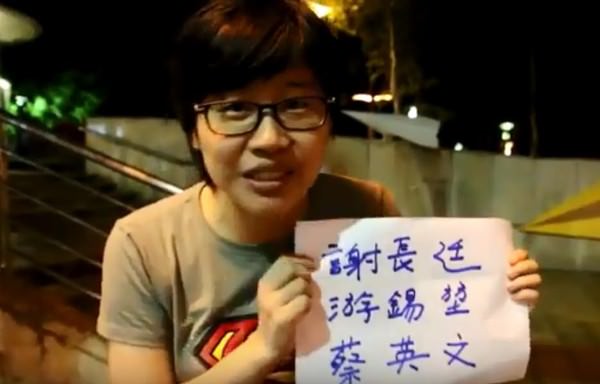 謝長廷
游錫堃
蔡英文